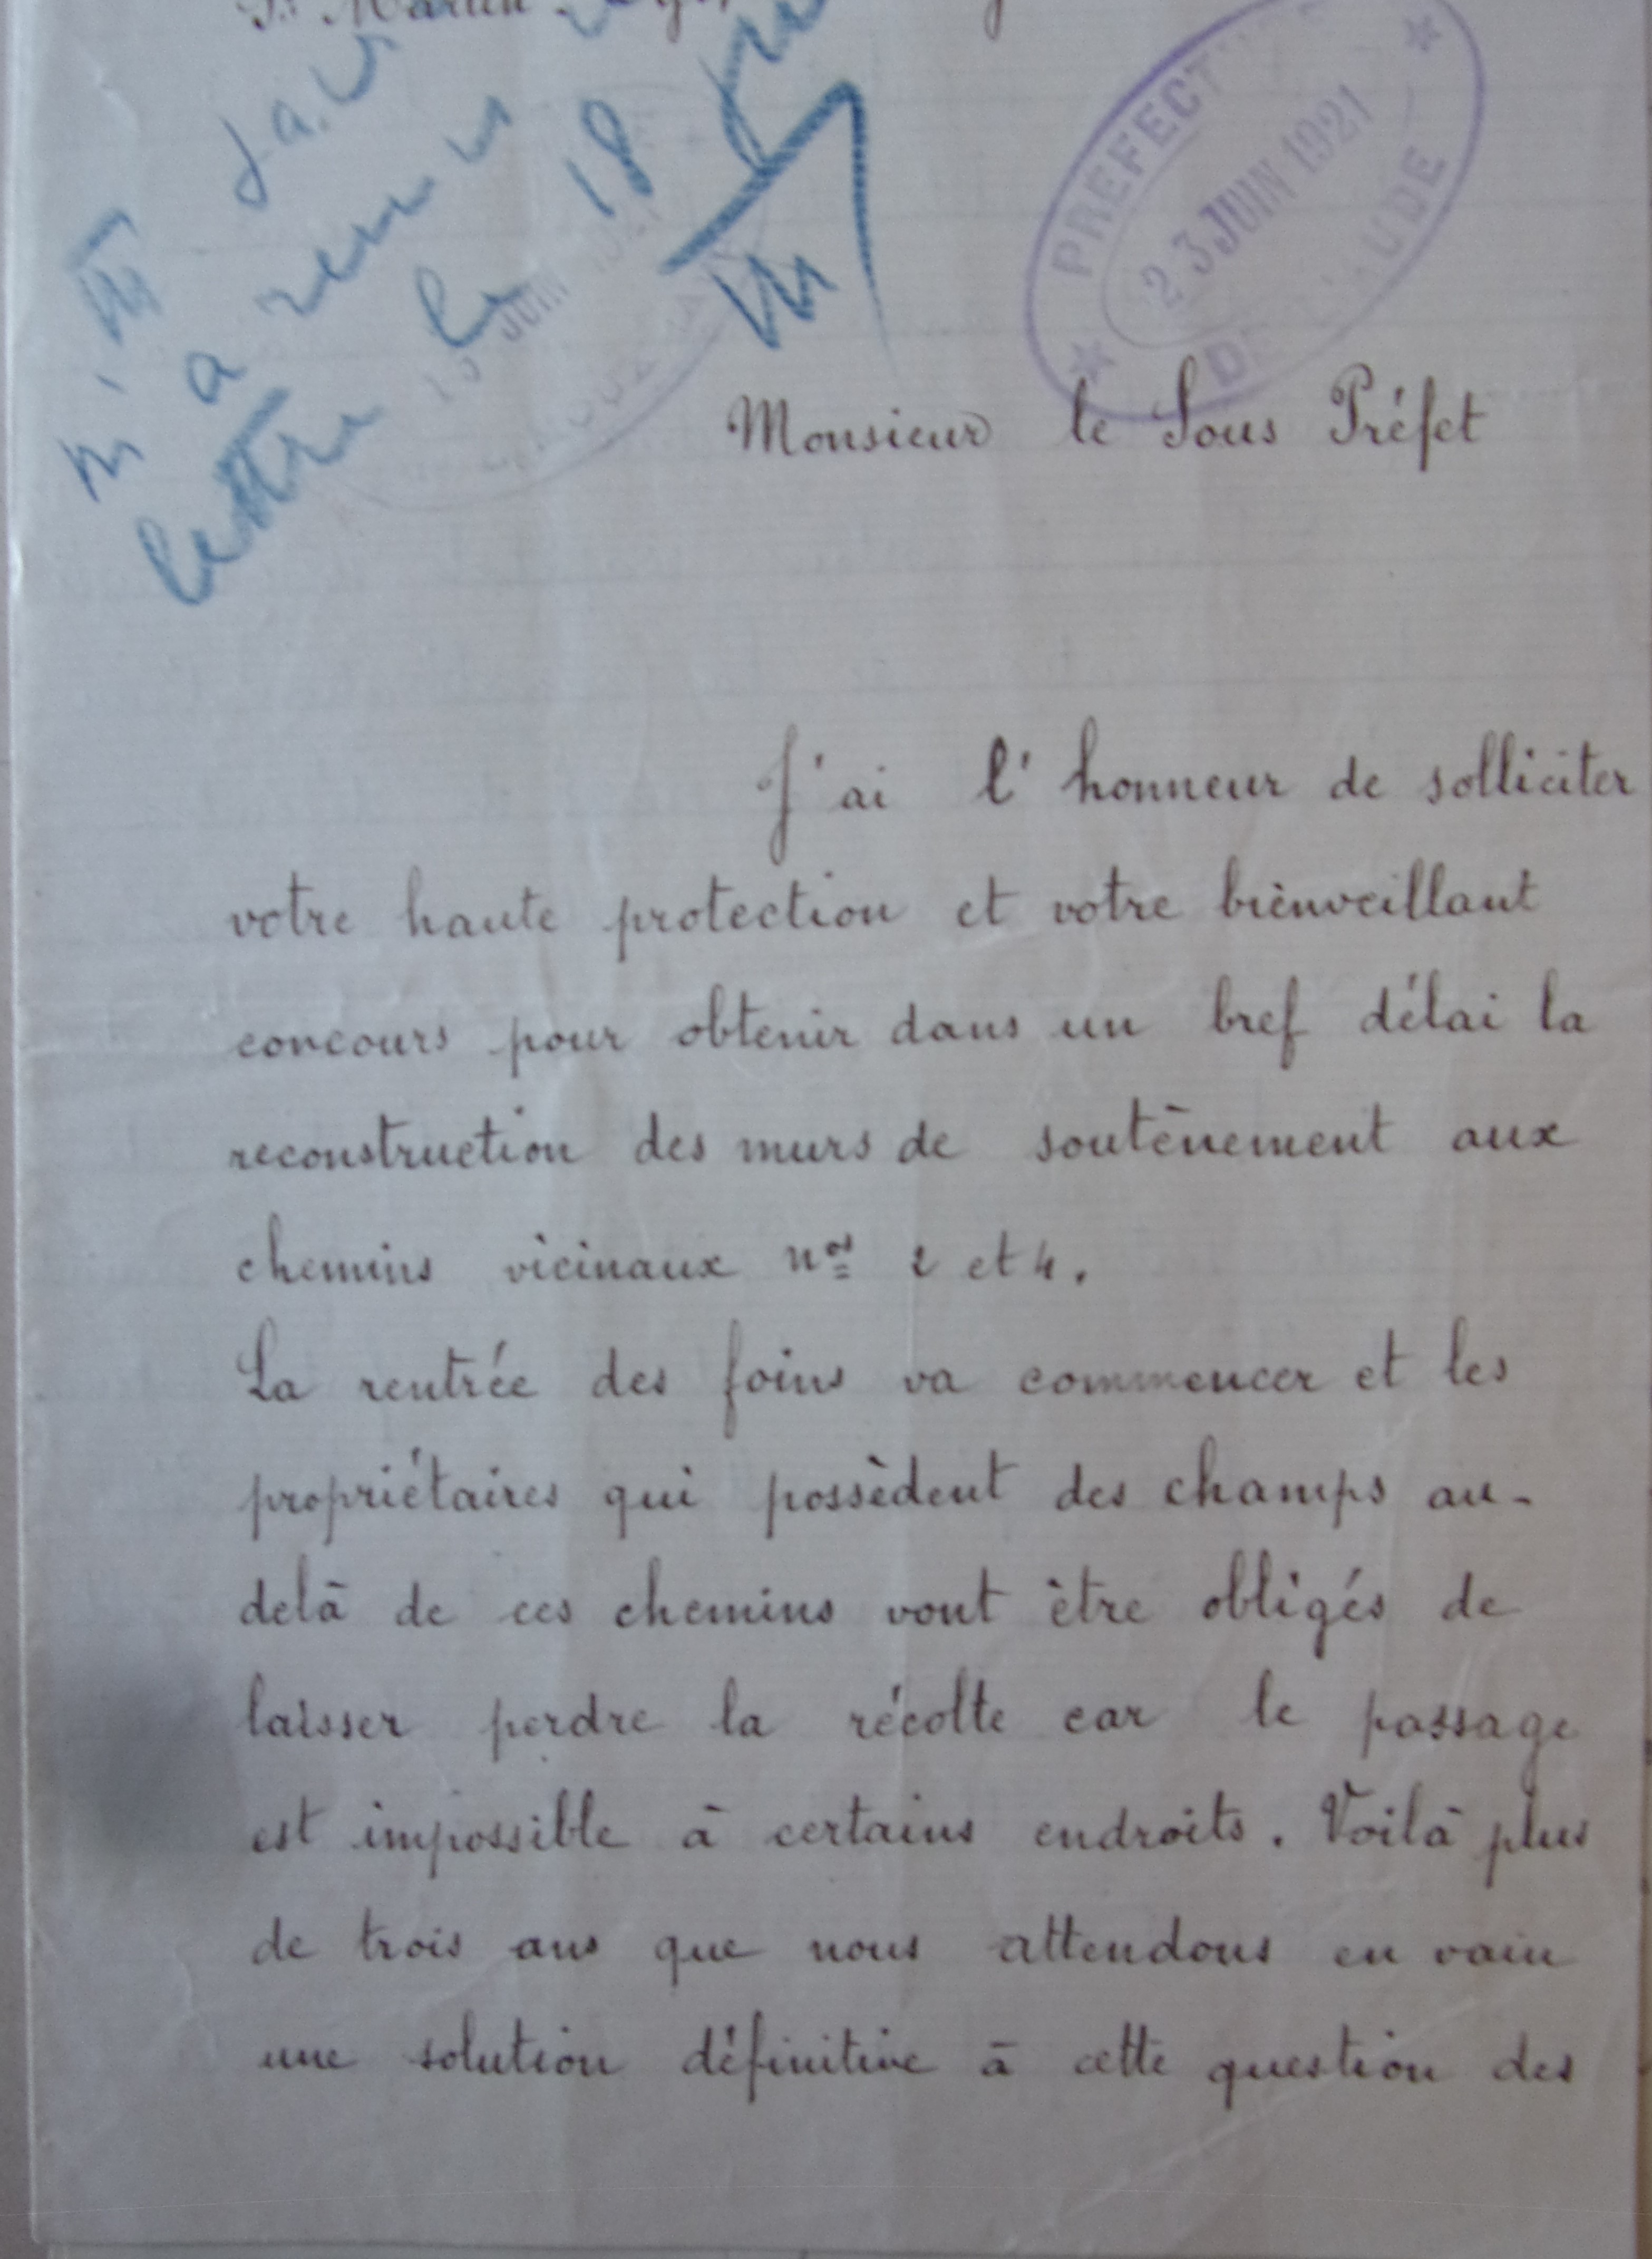 St Martin
a remis
lettre le 18
PREFECTURE
23 JUIN 1921
DE L'AUDE
JUIN
Monsieur le Sous Préfet
J'ai l'honneur de solliciter
votre haute protection et votre bienveillant
concours pour obtenir dans un bref délai la
reconstruction des murs de soutènement aux
chemins vicinaux nos 2 et 4.
La rentrée des foins va commencer et les
propriétaires qui possèdent des champs au-
delà de ces chemins vont être obligés de
laisser perdre la récolte car le passage
est impossible à certains endroits. Voilà plus
de trois ans que nous attendons en vain
une solution définitive à cette question des